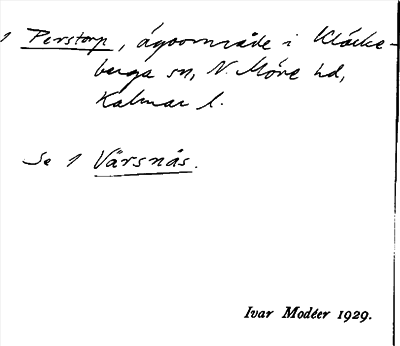 1 Perstorp, ägoområde i Kläcke-
berga sn, N. Möre hd,
Kalmar l.
Se 1 Värsnäs.
Ivar Modéer 1929.